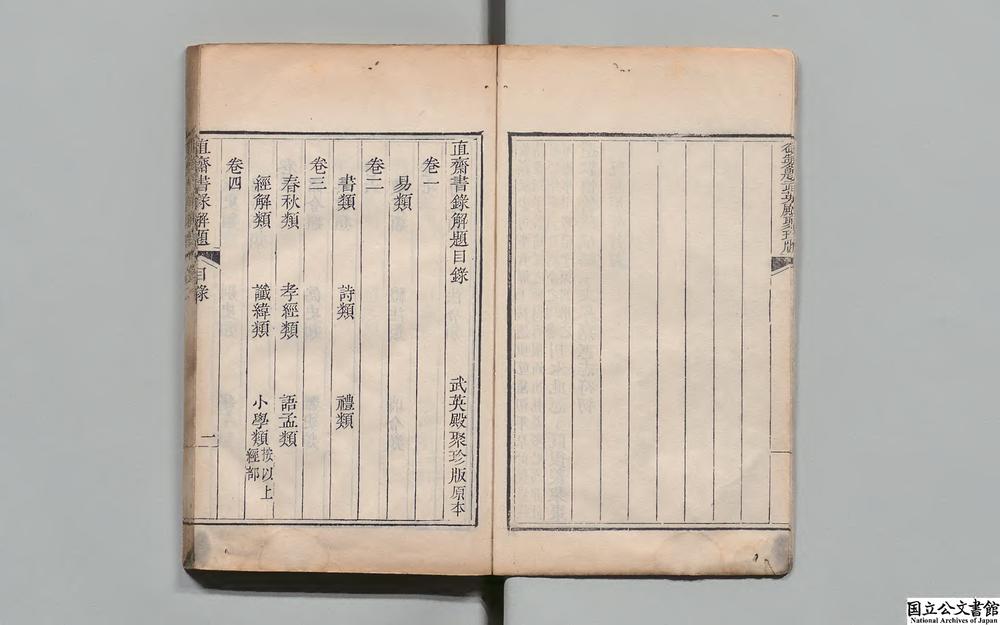 直齋書錄解題目錄 武英殿聚珍版原本
卷一
易類
卷二
書類 詩類 禮類
卷三
春秋類 孝經類 語孟類
經解類 讖緯類 小學類按以上經部
卷四
直齋書錄解題 目錄 二
国立公文書館
National Archives of Japan